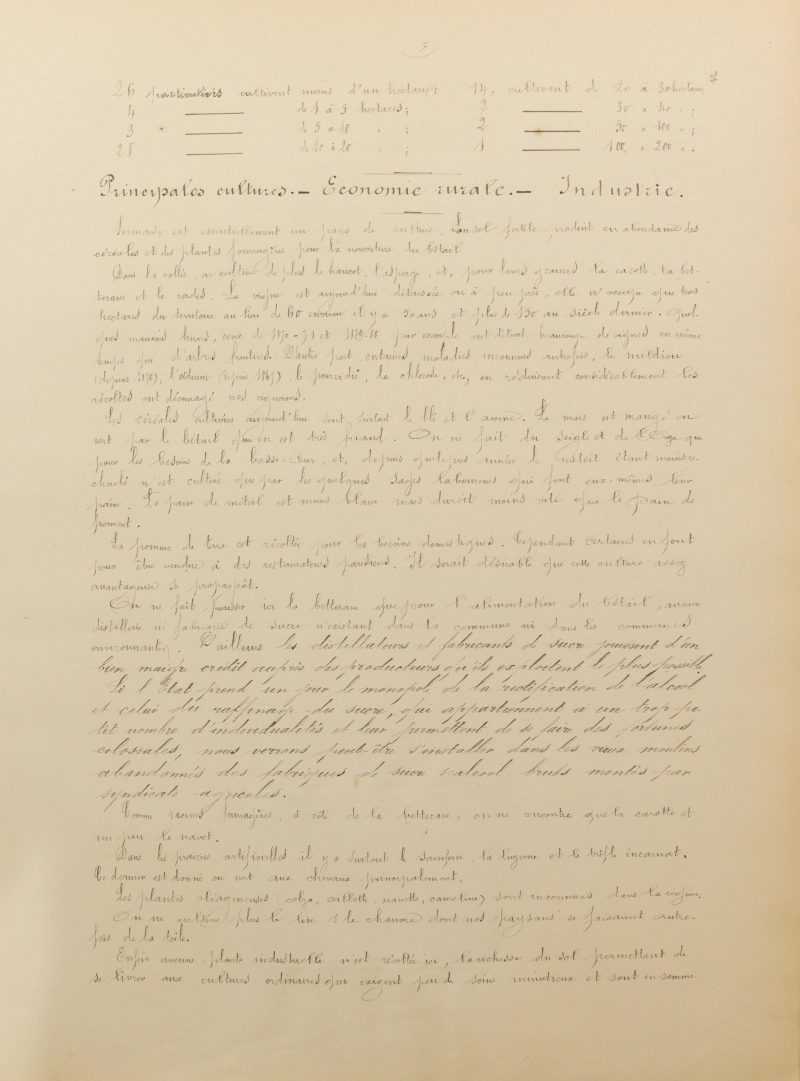 3
26 particuliers cultivent moins d'un hectare; 14, cultivent de 20 à 30 hectares
4 de 1 à 5 hectares; 3 30 à 40 " ;
3 de 5 à 10 " ; 2 50 à 100 " ;
28 de 10 à 20 " ; 1 100 à 200 " .
Principales cultures. — Economie rurale. — Industrie.
est essentiellement un pays de culture. Son sol fertile produit en abondance des
céréales et des plantes fourragères pour la nourriture du bétail
Dans la vallée on cultive de plus le haricot, l'asperge, et, pour leurs graines la carotte, la bet-
terave et le radis. La vigne est aujourd'hui délaissée ou à peu près, elle n'occupe que trois
hectares du territoire au lieu de 60 environ il y a 30 ans et plus de 150 au siècle dernier. Quel
ques mauvais hivers, ceux de 1870-71 et 1879-80 par exemple ont détruit beaucoup de vignes en même
temps que d'arbres fruitiers. D'autre part certaines maladies inconnues autrefois, le mildiou
(depuis 1878), l'oïdium (depuis 1865), le pourridié, la chlorose, etc, en réduisant considérablement les
récoltes ont découragé nos vignerons.
Les céréales cultivées aujourd'hui sont surtout le blé et l'avoine. Le maïs est mangé en
vert par le bétail qui en est très friand. On ne fait du seigle et de l'orge que
pour les besoins de la basse-cour, et, depuis quelques années le méteil étant moins re-
cherché n'est cultivé que par les quelques sages laboureurs qui font eux-mêmes leur
pain. Le pain de méteil est moins blanc mais durcit moins vite que le pain de
froment.
La pomme de terre est récoltée pour les besoins domestiques. Cependant certains en font
pour être vendue à des restaurateurs parisiens. Il serait désirable que cette culture assez
avantageuse se propageât.
On ne fait pousser ici la betterave que pour l'alimentation du bétail, aucune
distillerie ni fabrique de sucre n'existant dans la commune ni dans les communes
environnantes. D'ailleurs les distillateurs et fabricants de sucre jouissent d'un
bien maigre crédit auprès des producteurs qu'ils exploitent le plus possible.
Si l'Etat prend un jour le monopole de la rectification de l'alcool
et celui du raffinage du sucre, qui appartiennent à un trop pe-
tit nombre d'individualités et leur permettent de se faire des fortunes
colossales, nous verrons peut-être s'installer dans les vieux moulins
abandonnés des fabriques de sucre & alcool bruts montés par
syndicats agricoles.
Comme racines fourragères, à côté de la betterave, on ne rencontre que la carotte et
un peu le navet.
Dans les prairies artificielles il y a surtout le sainfoin, la luzerne et le trèfle incarnat.
Ce dernier est donné en vert aux chevaux principalement.
Les plantes oléagineuses (colza, œillette, navette, cameline) sont inconnues dans la région.
On ne cultive plus le lin & le chanvre dont nos paysans se faisaient autre-
fois de la toile.
Enfin aucune plante industrielle n'est récoltée ici, la richesse du sol permettant de
se livrer aux cultures ordinaires qui exigent peu de soins minutieux et sont en somme